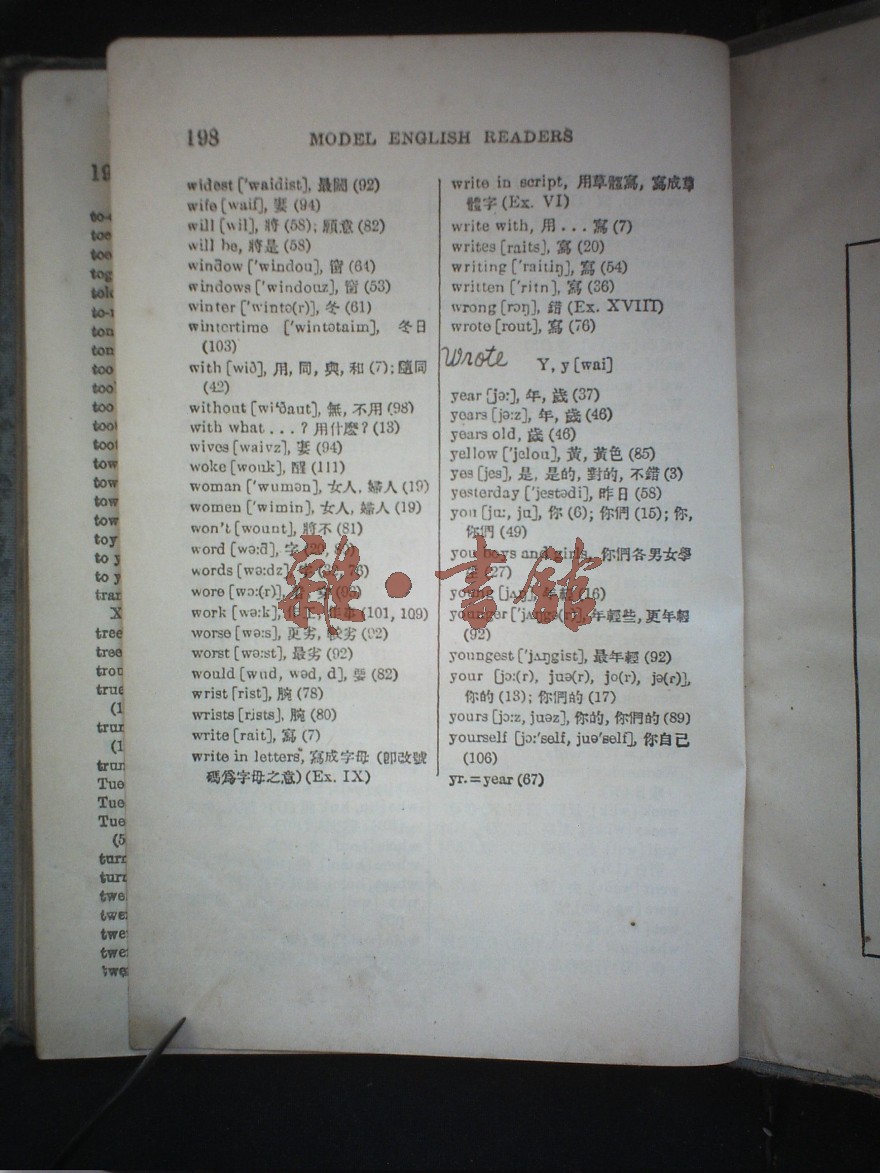 198
MODEL ENGLISH READERS
widest ['waidist], 最闊 (92)
wife [waif], 妻 (94)
will [wil], 將 (58); 願意 (82)
will be, 將是 (58)
window ['windou], 窗 (64)
windows ['windouz], 窗 (53)
winter ['wintə(r)], 冬 (61)
wintertime ['wintətaim], 冬日
(103)
with [wið], 用, 同, 與, 和 (7); 隨同
(42)
without [wi'ðaut], 無, 不用 (98)
with what . . . ? 用什麼? (13)
wives [waivz], 妻 (94)
woke [wouk], 醒 (111)
woman ['wumən], 女人, 婦人 (19)
women ['wimin], 女人, 婦人 (19)
won't [wount], 將不 (81)
word [wə:d], 字
words [wə:dz],
wore [wɔ:(r)],
work [wə:k], (101, 109)
worse [wə:s], 更劣, 較劣 (92)
worst [wə:st], 最劣 (92)
would [wud, wəd, d], 要 (82)
wrist [rist], 腕 (78)
wrists [rists], 腕 (80)
write [rait], 寫 (7)
write in letters, 寫成字母 (卽改號
碼爲字母之意) (Ex. IX)
write in script, 用草體寫, 寫成草
體字 (Ex. VI)
write with, 用 . . . 寫 (7)
writes [raits], 寫 (20)
writing ['raitiŋ], 寫 (54)
written ['ritn], 寫 (36)
wrong [rɔŋ], 錯 (Ex. XVIII)
wrote [rout], 寫 (76)
Wrote
Y, y [wai]
year [jə:], 年, 歲 (37)
years [jə:z], 年, 歲 (46)
years old, 歲 (46)
yellow ['jelou], 黃, 黃色 (85)
yes [jes], 是, 是的, 對的, 不錯 (3)
yesterday ['jestədi], 昨日 (58)
you [ju:, ju], 你 (6); 你們 (15); 你,
你們 (49)
you boys and girls, 你們各男女學
(27)
young [jʌŋ], 年輕 (16)
younger ['jʌŋgə(r)], 年輕些, 更年輕
(92)
youngest ['jʌŋgist], 最年輕 (92)
your [jɔ:(r), juə(r), jo(r), jə(r)],
你的 (13); 你們的 (17)
yours [jɔ:z, juəz], 你的, 你們的 (89)
yourself [jɔ:'self, juə'self], 你自己
(106)
yr. = year (67)
雜·書館
19
too
too
too
too
tow
tow
tow
tow
toy
to y
to y
X
tree
true
(1
(1
Tue
Tue
Tue
(5
turn
turn
twe
twe
twe
twe